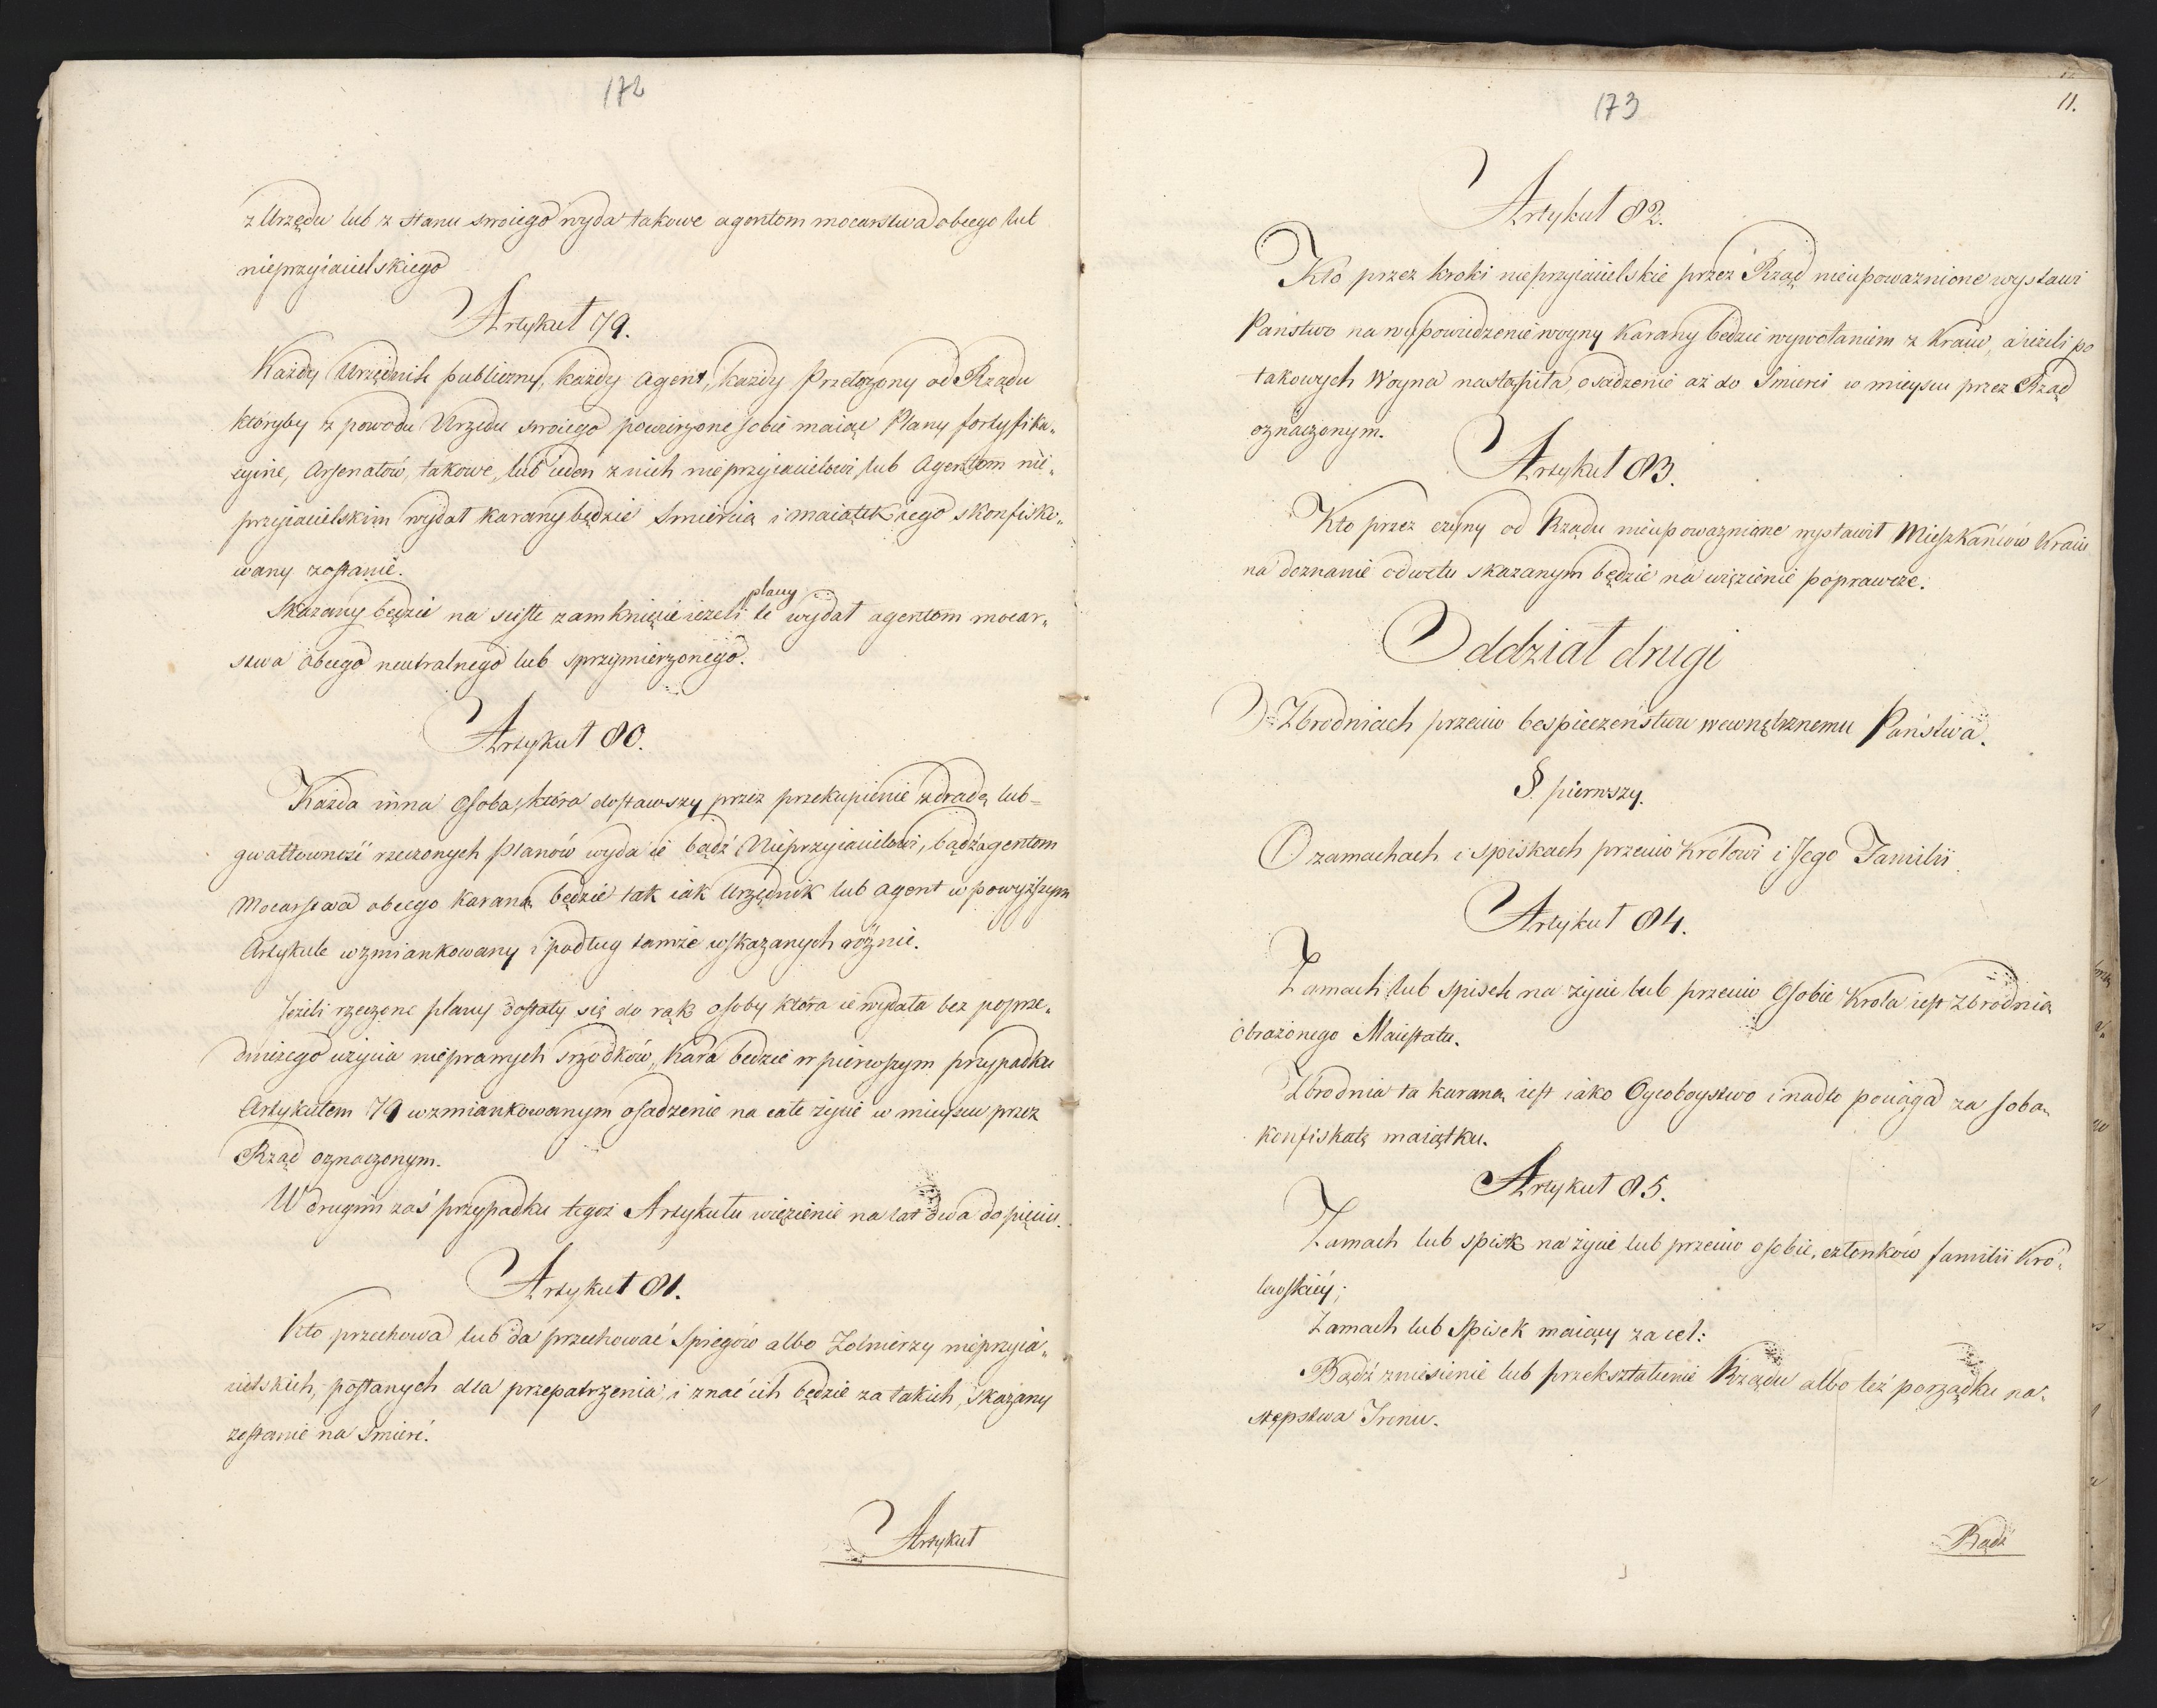 172
z Urzędu lub z stanu swoiego wyda takowe agentom mocarstwa obcego lub
nieprzyiacielskiego
Artykuł 79.
Każdy Urzędnik publiczny, każdy Agent, każdy Przełożony od Rządu
któryby z powodu Urzędu swoiego powierzone sobie maiąc Plany fortyfika„
cyine, Arsenałów, takowe, lub ieden z nich nieprzyiacielowi lub Agentom nie„
przyiacielskim wydał karany będzie śmiercią i maiątek iego skonfisko„
wany zostanie.
plany
Skazany będzie na ścisłe zamknięcie ieżeli te wydał agentom mocar„
stwa obcego neutralnego lub sprzymierzonego.
Artykuł 80.
Każda inna Osoba, która dostawszy przez przekupienie zdradę lub=
gwałtowność rzeczonych planów wyda ie bądź Nieprzyiacielowi, bądź agentom
Mocarstwa obcego karaną będzie tak iak Urzędnik lub agent w powyższym
Artykule wzmiankowany i podług tamże wskazanych różnic.
Jeżeli rzeczone plany dostały się do rąk osoby która ie wydała bez poprze„
dniczego użycia nieprawych srzodków, kara będzie w pierwszym przypadku
Artykułem 79 wzmiankowanym osadzenie na całe życie w mieyscu przez
Rząd oznaczonym.
W drugim zaś przypadku tegoż Artykułu więzienie na lat dwa do pięciu.
Artykuł 81.
Kto przechowa lub da przechować Spiegów albo Żołnierzy nieprzyia„
cielskich, posłanych dla przepatrzenia, i znać ich będzie za takich, skazany
zostanie na śmierć.
Artykuł
173
11.
Artykuł 82.
Kto przez kroki nieprzyiacielskie przez Rząd nieupoważnione wystawi
Państwo na wypowiedzenie woyny karany będzie wywołaniem z Kraiu, a ieżeli po
takowych Woyna nastąpiła, osadzenie aż do Śmierci w mieyscu przez Rząd
oznaczonym.
Artykuł 83.
Kto przez czyny od Rządu nieupoważnione wystawił Mieszkańców Kraiu
na doznanie odwetu skazanym będzie na więzienie poprawcze.
Oddział drugi
O Zbrodniach przeciw bespieczeństwu wewnętrznemu Państwa.
§. pierwszy.
O zamachach i spiskach przeciw Królowi i Jego Familii.
Artykuł 84.
Zamach lub spisek na życie lub przeciw Osobie Króla iest Zbrodnią
obrażonego Maiestatu.
Zbrodnia ta karaną iest iako Oycoboystwo i nadto pociąga za sobą
konfiskatę maiątku.
Artykuł 85.
Zamach lub spisek na życie lub przeciw osobie, członków familii Kró„
lewskiéy;
Zamach lub Spisek maiący za cel:
Bądź zniesienie lub przekształcenie Rządu albo też porządku na„
stępstwa Tronu.
Bądź